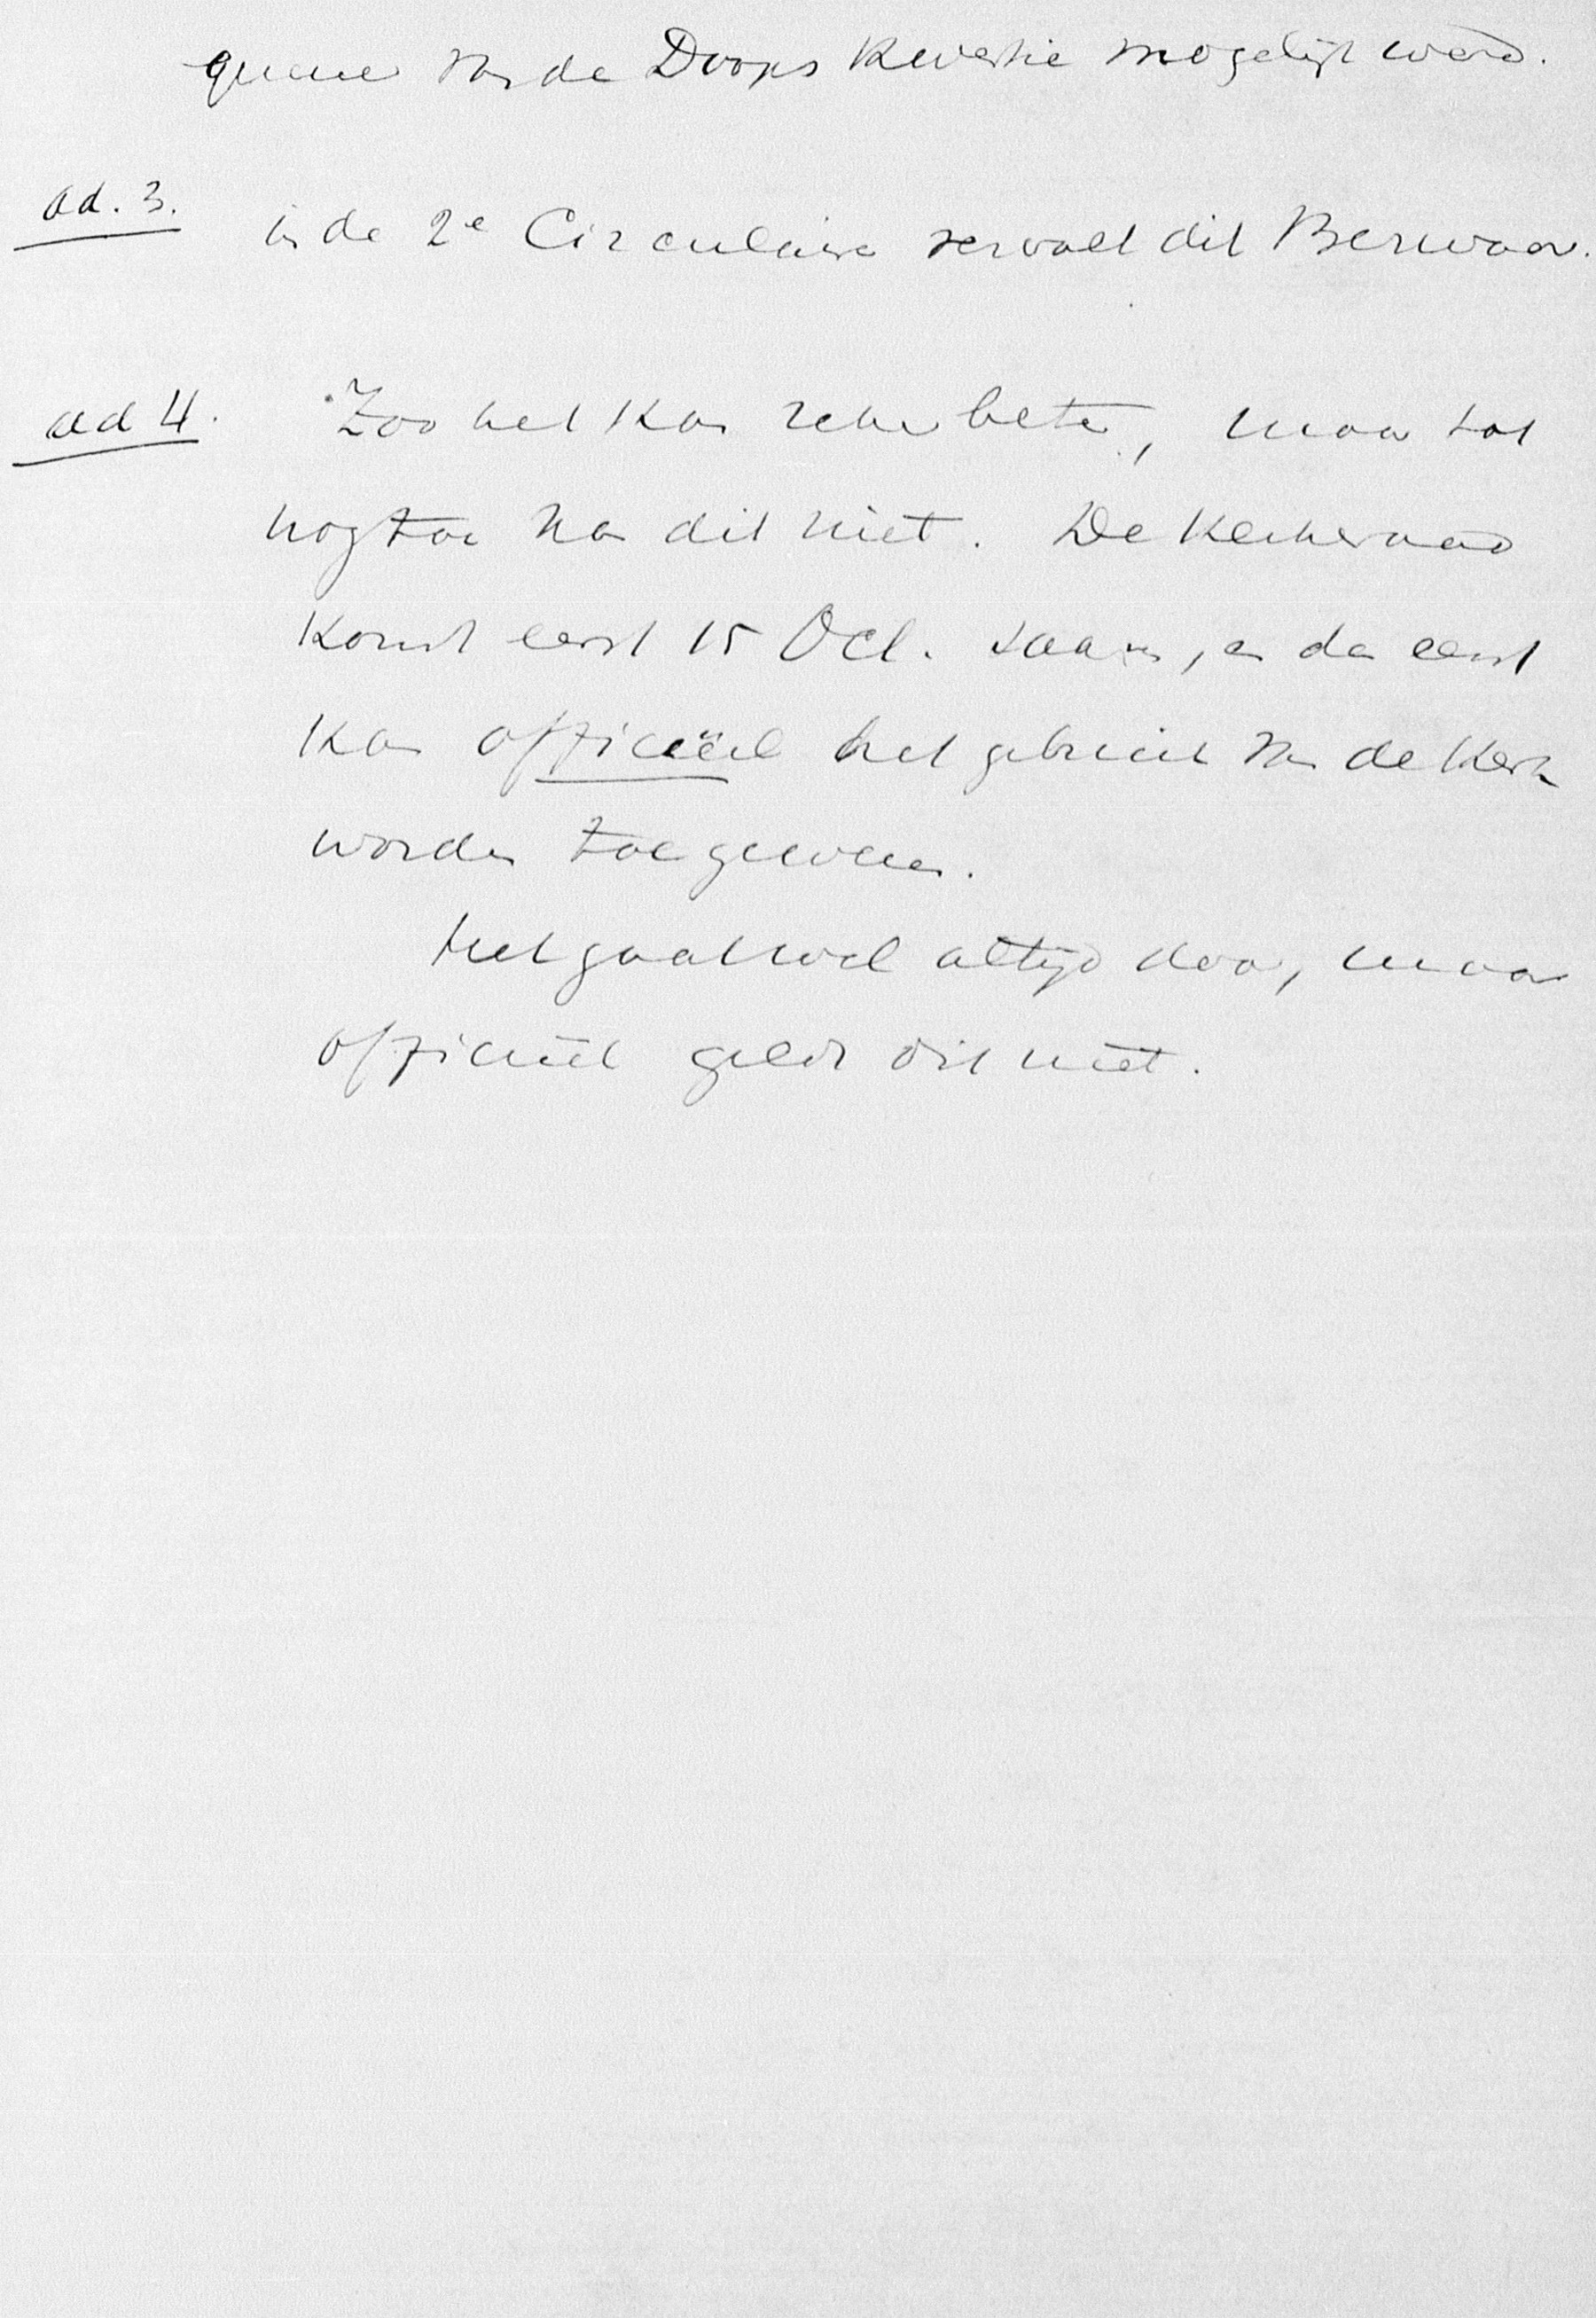 quaene van de Doops Kwestie mogelijk werd.
ad. 3. in de 2e Circulaire vervalt dit Bezwaar.
ad 4. Zoo het kan zeker beter, maar tot
nog toe kan dit niet. De Kerkeraad
komt eerst 15 Oct. saam, en dan eerst
kan officiëel het gebruik van de Kerk
worden toegewezen.
Het gaat wel altijd door, maar
officiëel geldt dit niet.